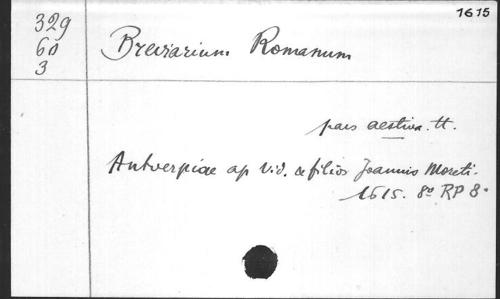 1615
329
60
3
Breviarium Romanum
pars aestiva. tt.
Antverpiae ap vid. & filios Joannis Moreti.
1615. 8° RP 8.